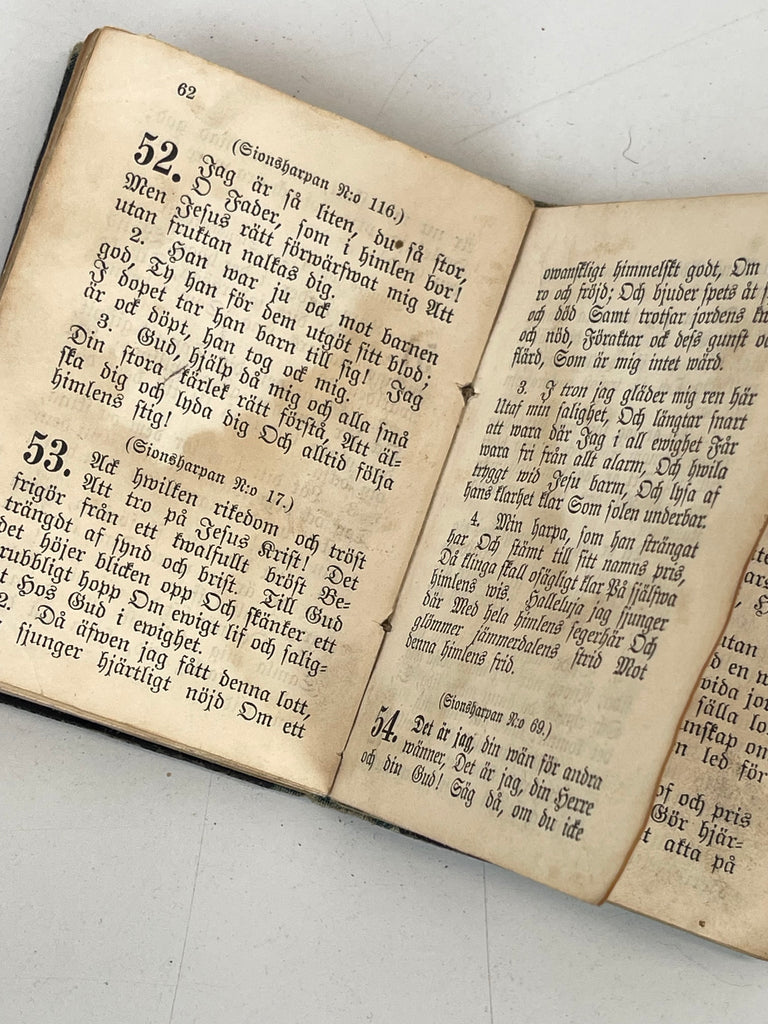 62
(Sionsharpan N:o 116.)
52. Jag är så liten, du så stor,
O Fader, som i himlen bor!
Men Jesus rätt förwärfwat mig Att
utan fruktan nalkas dig.
2. Han war ju ock mot barnen
god, Ty han för dem utgöt sitt blod;
I dopet tar han barn till sig! Jag
är ock döpt, han tog ock mig.
3. Gud, hjälp då mig och alla små
Din stora kärlek rätt förstå, Att äl-
ska dig och lyda dig Och alltid följa
himlens stig!
(Sionsharpan N:o 17.)
53. Ack hwilken rikedom och tröst
Att tro på Jesus Krist! Det
frigör från ett kwalfullt bröst Be-
trängdt af synd och brist. Till Gud
det höjer blicken opp Och skänker ett
rubbligt hopp Om ewigt lif och salig-
t Hos Gud i ewighet.
2. Då äfwen jag fått denna lott,
sjunger hjärtligt nöjd Om ett
owanskligt himmelskt godt, Om
ro och fröjd; Och bjuder spets åt
och död Samt trotsar jordens
och nöd, Föraktar ock dess gunst
flärd, Som är mig intet wärd.
3. I tron jag gläder mig ren här
Utaf min salighet, Och längtar snart
att wara där Jag i all ewighet Får
wara fri från allt alarm, Och hwila
tryggt wid Jesu barm, Och lysa af
hans klarhet klar Som solen underbar.
4. Min harpa, som han strängat
har Och stämt till sitt namns pris,
Då klinga skall osägligt klar På själfwa
himlens wis. Halleluja jag sjunger
där Med hela himlens segerhär Och
glömmer jämmerdalens strid Mot
denna himlens frid.
(Sionsharpan N:o 69.)
54. Det är jag, din wän för andra
wänner, Det är jag, din Herre
och din Gud! Säg då, om du icke
utan
d en
vida
fälla
n led för
of och pris
Gör hjär-
t akta på